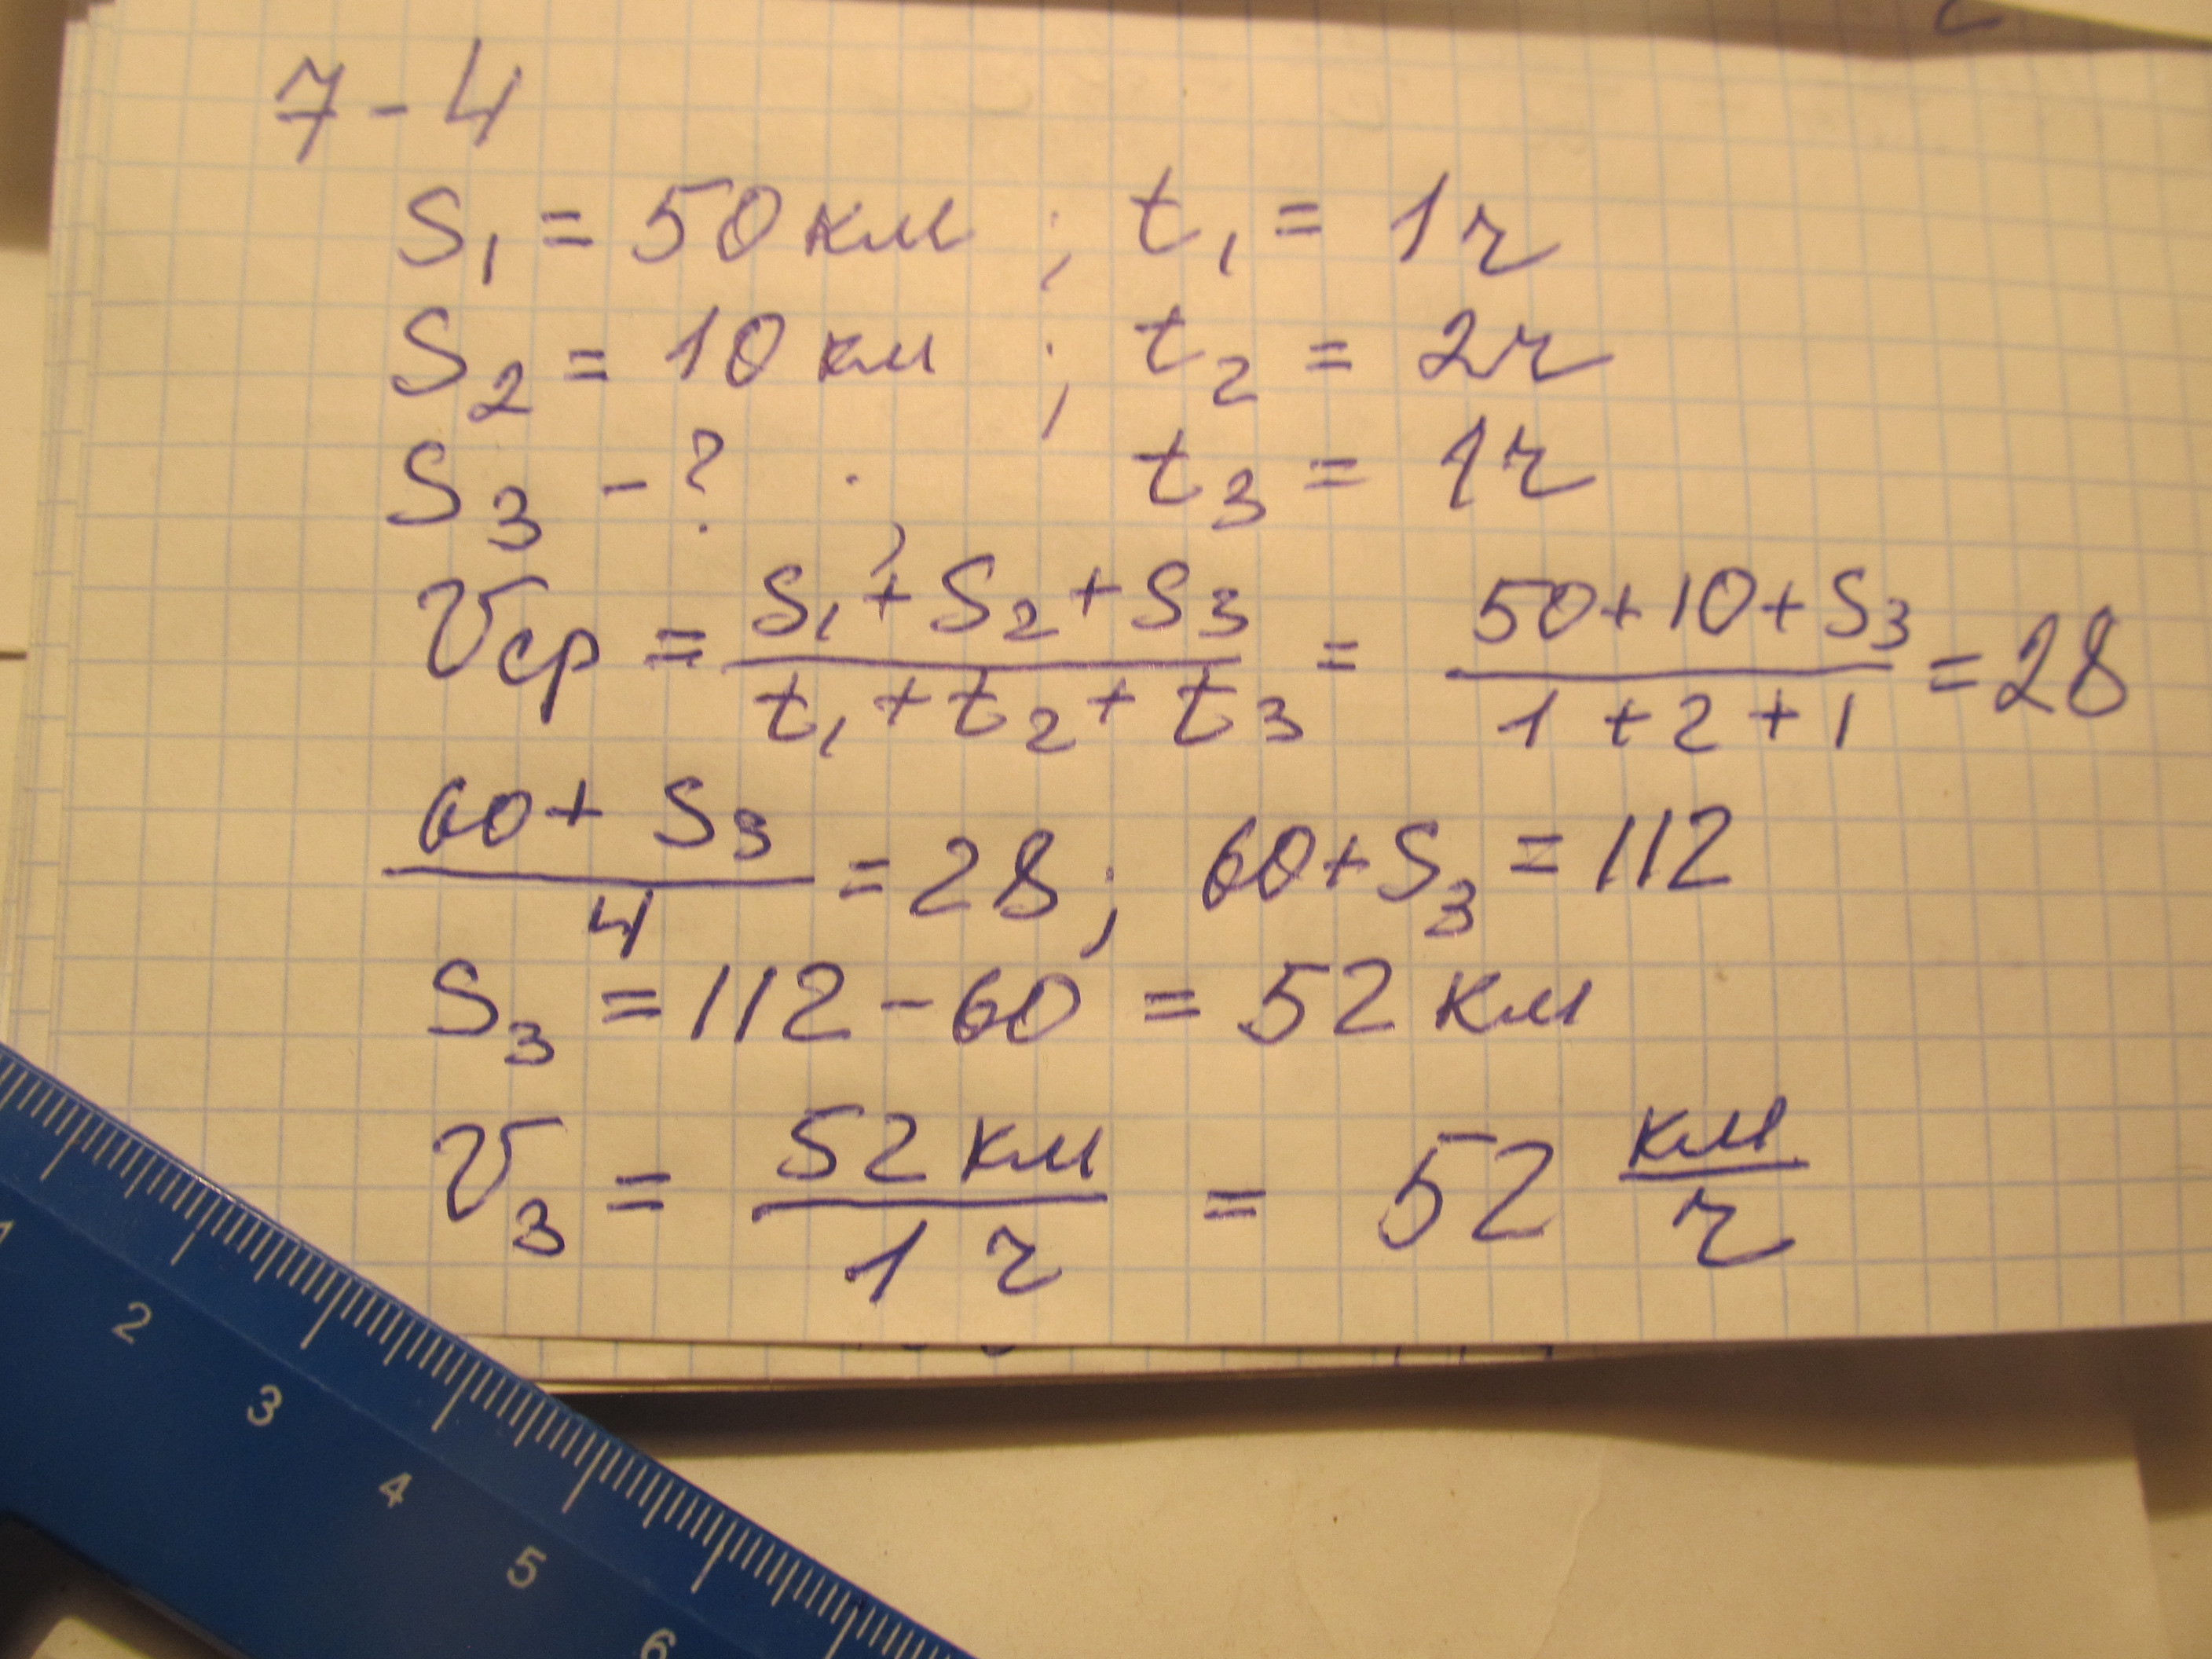 7-4
S₁ = 50 км ; t₁ = 1ч
S₂ = 10 км ; t₂ = 2ч
S₃ - ? ; t₃ = 1ч
Vср = (S₁ + S₂ + S₃)/(t₁ + t₂ + t₃) = (50+10+S₃)/(1+2+1) = 28
(60 + S₃)/4 = 28 ; 60 + S₃ = 112
S₃ = 112 - 60 = 52 км
V₃ = 52 км/1 ч = 52 км/ч
2
3
4
5
6